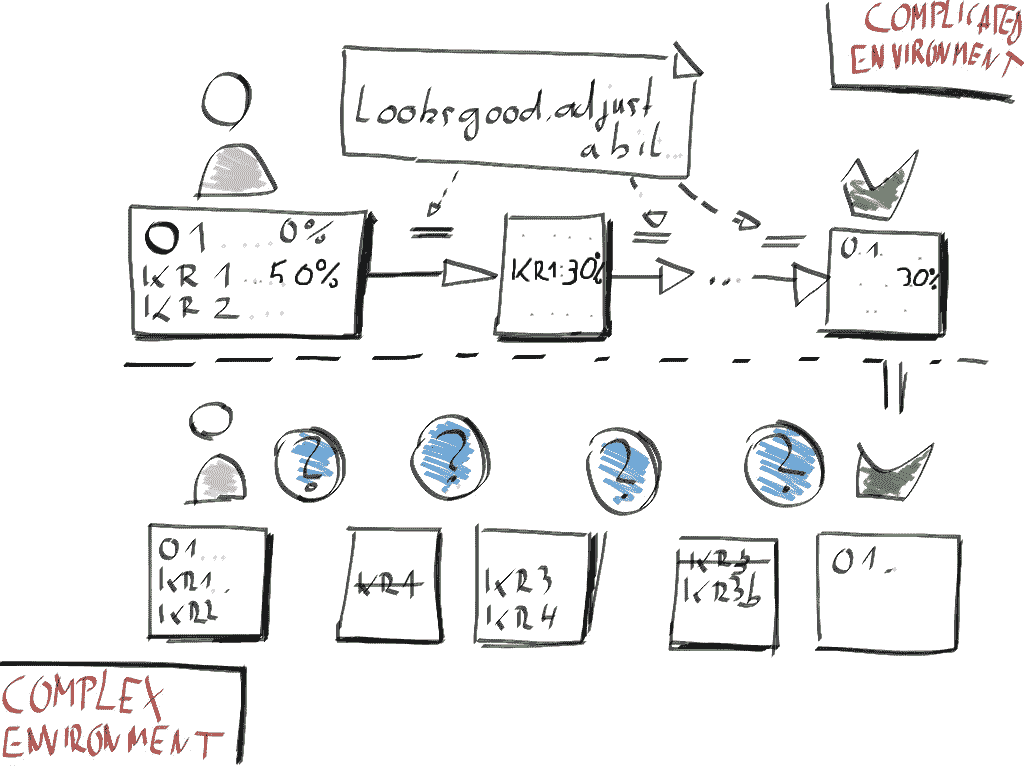 COMPLICATED
ENVIRONMENT
Looks good, adjust
a bit...
O 1 ..... 0%
KR 1 ... 50%
KR 2 ....
KR1: 30%
...
O 1.
30%
? ? ? ?
O 1 ...
KR1 .
KR2
KR4
KR3
KR4
KR3
KR3b
O 1 .
COMPLEX
ENVIRONMENT